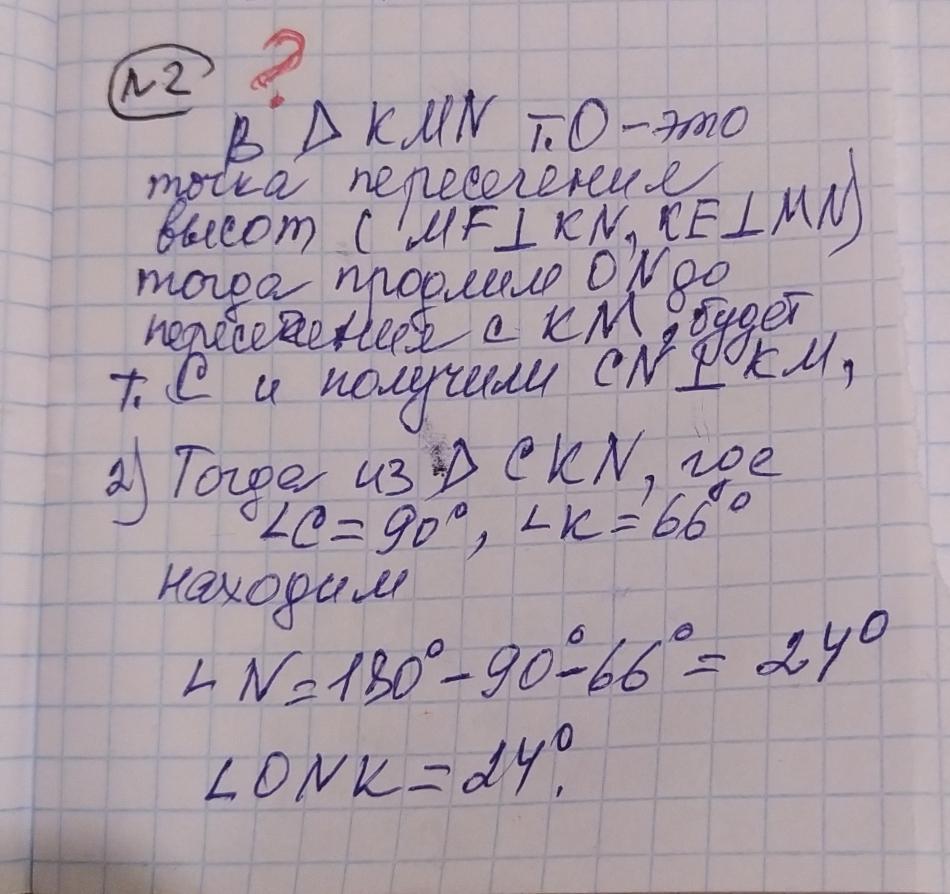 №2 ?
В Δ KMN т.О - это
точка пересечения
высот (MF⊥KN, KE⊥MN)
тогда продлили ON до
пересечения с KM, будет
т. C и получили CN⊥KM,
2) Тогда из Δ CKN, где
∠C = 90°, ∠K = 66°
находим
∠N = 180° - 90° - 66° = 24°
∠ONK = 24°.